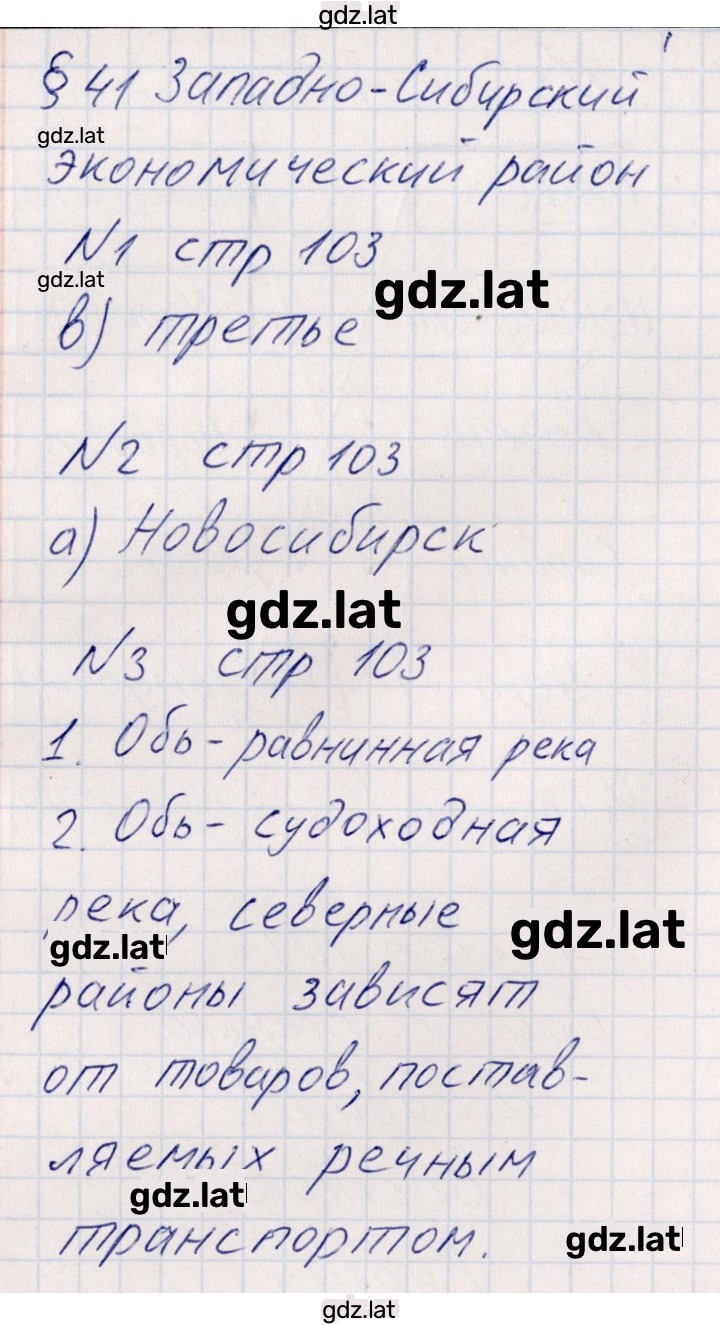 gdz.lat
§ 41 Западно-Сибирский
gdz.lat
экономический район
N1 стр 103
gdz.lat
gdz.lat
в) третье
N2 стр 103
а) Новосибирск
gdz.lat
N3 стр 103
1. Обь - равнинная река
2. Обь - судоходная
река, северные
gdz.lat
gdz.lat
районы зависят
от товаров, постав-
ляемых речным
gdz.lat
транспортом.
gdz.lat
gdz.lat